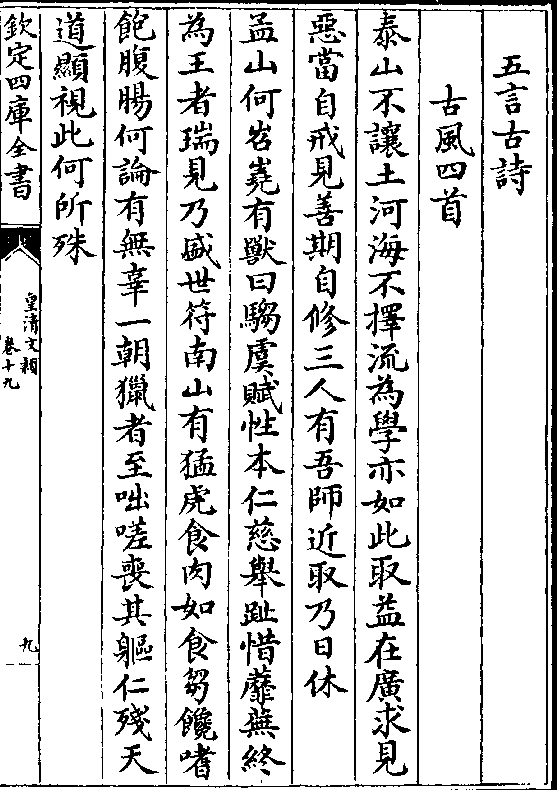 五言古詩
古風四首
泰山不讓土河海不擇流為學亦如此取益在廣求見
惡當自戒見善期自修三人有吾師近取乃日休
孟山何岧嶤有獸曰騶虞賦性本仁慈舉趾惜蘼蕪終
為王者瑞見乃盛世符南山有猛虎食肉如食芻饞嗜
飽腹腸何論有無辜一朝獵者至咄嗟喪其軀仁殘天
道顯視此何所殊
欽定四庫全書
皇清文穎
卷十九
九